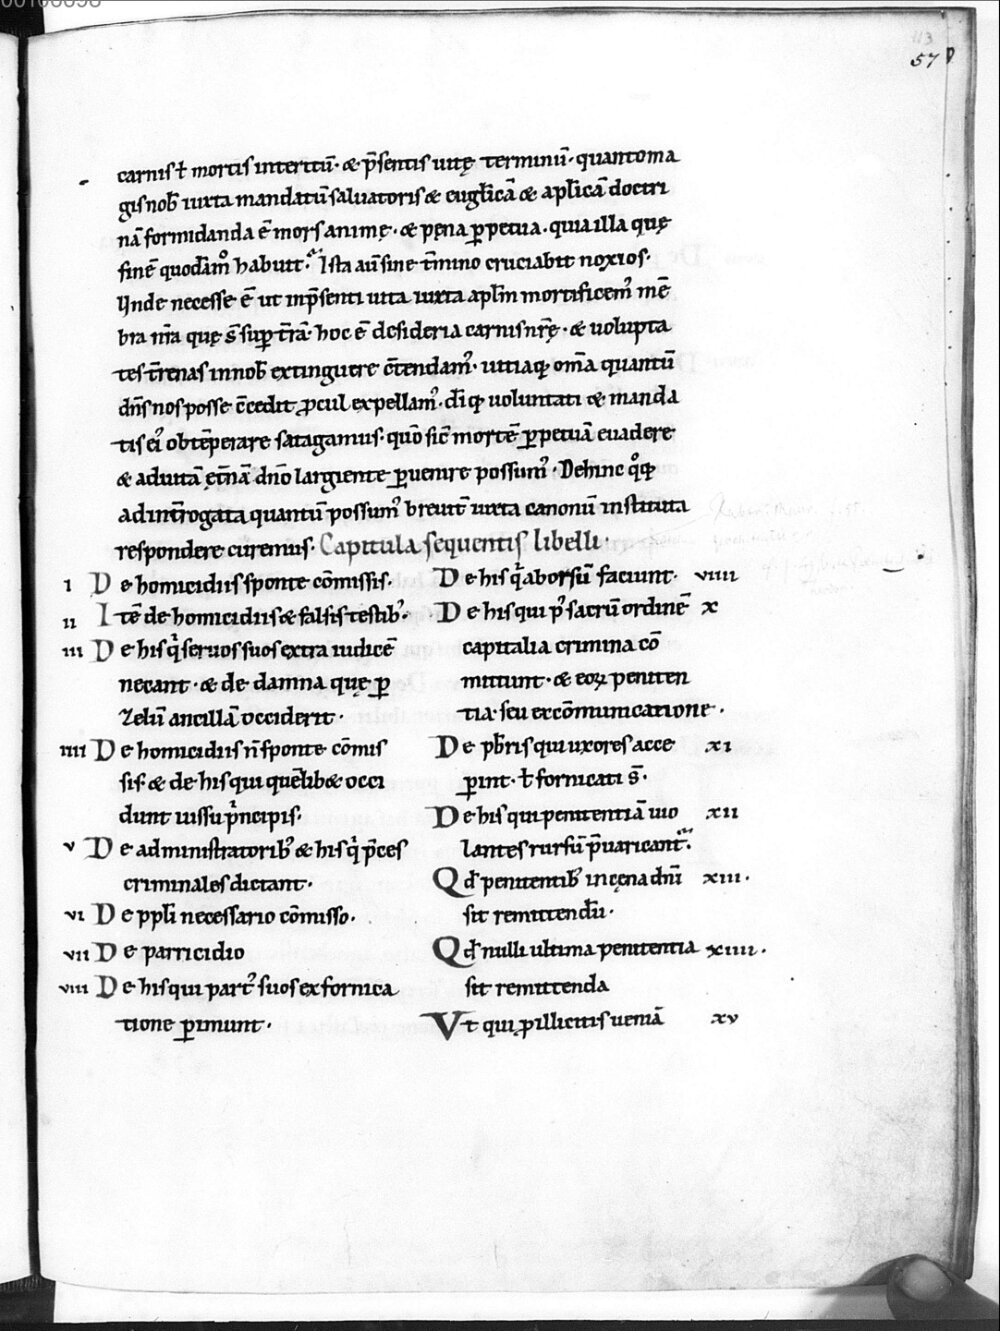 113
57
carnis ł mortis interitū· & p̄sentis uitę terminū· quanto ma
gis nob̄ iuxta mandatū saluatoris & euglicā & aplicā doctri
nā formidanda ē mors animę· & pęna ꝑpetua· quia illa quę
finē quodāmº habuit· Ista aū sine t̄mino cruciabit noxios·
Unde necesse ē ut in p̄senti uita iuxta aplm̄ mortificemꝰ mē
bra nr̄a quę s̄ suꝑ t̄rā· hoc ē desideria carnis nr̄ę· & uolupta
tes t̄renas in nob̄ extinguere c̄tendamꝰ· uitiaq; om̄a quantū
dn̄s nos posse c̄cedit ꝓcul expellamꝰ· dī q; uoluntati & manda
tis eiꝰ obtēperare satagamus· quo sic̄ mortē ꝑpetuā euadere
& ad uitā ęt̄nā dn̄o largiente ꝑuenire possimꝰ· Dehinc qºq;
ad int̄rogata quantū possumꝰ breuit̄ iuxta canonū instituta
respondere curemus· Capitula sequentis libelli·
I De homicidiis sponte cōmissis·
II Itē de homicidiis & falsis testib;·
III De his qͥ seruos suos extra iudicē
necant· & de damna quę ꝑ
zelū ancillā occiderit·
IIII De homicidiis n̄ sponte cōmis
sis· & de his qui quēlib& occi
dunt iussu pͥncipis·
V De administratorib; & his qͥ p̄ces
criminales dictant·
VI De ppłi necessario cōmisso·
VII De parricidio
VIII De his qui partꝰ suos ex fornica
tione ꝑimunt·
De his qͥ aborsū faciunt· VIIII
De his qui pꝰ sacrū ordinē X
capitalia crimina cō
mittunt· & eoꝝ peniten
tia· seu excōmunicatione·
De pb̄ris qui uxores acce XI
ꝑint· ł fornicati s̄·
De his qui penitentiā uio XII
lantes rursū p̄uaricant·
Qđ penitentib; in cęna dn̄i XIII·
sit remittendū·
Qđ nulli ultima penitentia XIIII·
sit remittenda
Ut qui ꝓ illicitis ueniā XV